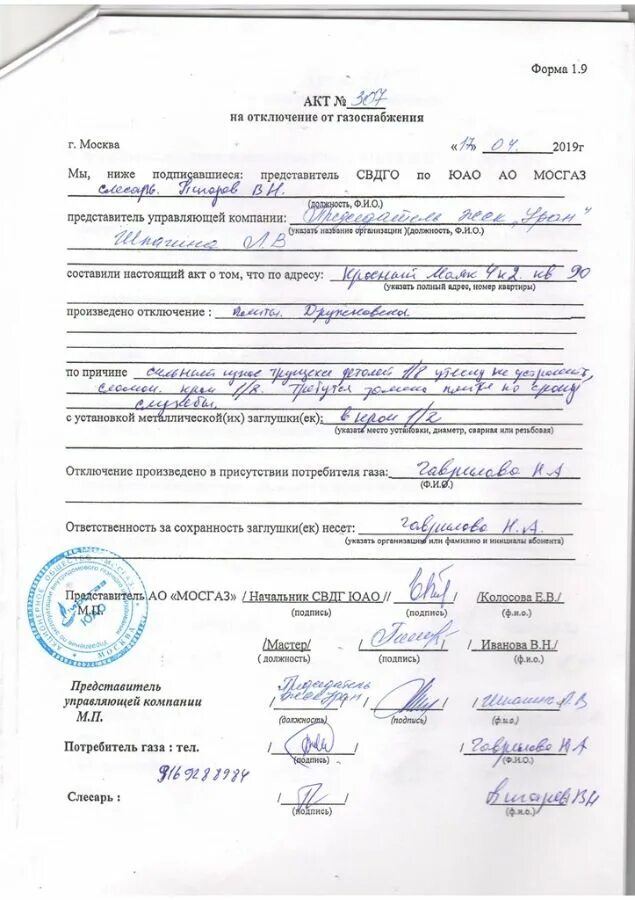 Форма 1.9
АКТ № 307
на отключение от газоснабжения
г. Москва «17» 04 2019г
Мы, ниже подписавшиеся: представитель СВДГО по ЮАО АО МОСГАЗ
слесарь В Н.
(должность, Ф.И.О.)
представитель управляющей компании: Председатель жсск „Уран"
(указать название организации )(должность, Ф.И.О.)
Шпагина Л.В
составили настоящий акт о том, что по адресу: Красный Маяк 4к2. кв 90
(указать полный адрес, номер квартиры)
произведено отключение : плиты.
по причино сильный износ трущихся деталей г/в утечку не устранить,
сломан. кран г/в. Требуется замена плиты по сроку
службы.
с установкой металлической(их) заглушки(ек): в кран 1/2
(указать место установки, диаметр, сварная или резьбовая)
Отключение произведено в присутствии потребителя газа: Гаврилова Н А
(Ф.И.О.)
Ответственность за сохранность заглушки(ек) несет: Гаврилова Н.А.
(указать организацию или фамилию и инициалы абонента)
Представитель АО «МОСГАЗ» / Начальник СВДГ ЮАО // / /Колосова Е.В./
М.П. (подпись) (подпись) (ф.и.о.)
/Мастер/ / / / Иванова В.Н./
(должность) (подпись) (ф.и.о.)
Представитель Председатель
управляющей компании / жсск Уран / / / / Шпагина Л.В
М.П. (должность) (подпись) (ф.и.о.)
Потребитель газа : тел. / / / Гаврилова Н А
(подпись) (Ф.И.О.)
9169288984
Слесарь : / / В Н
(подпись) (ф.и.о.)
АКЦИОНЕРНОЕ ОБЩЕСТВО МОСГАЗ
МОСКВА
ЮАО